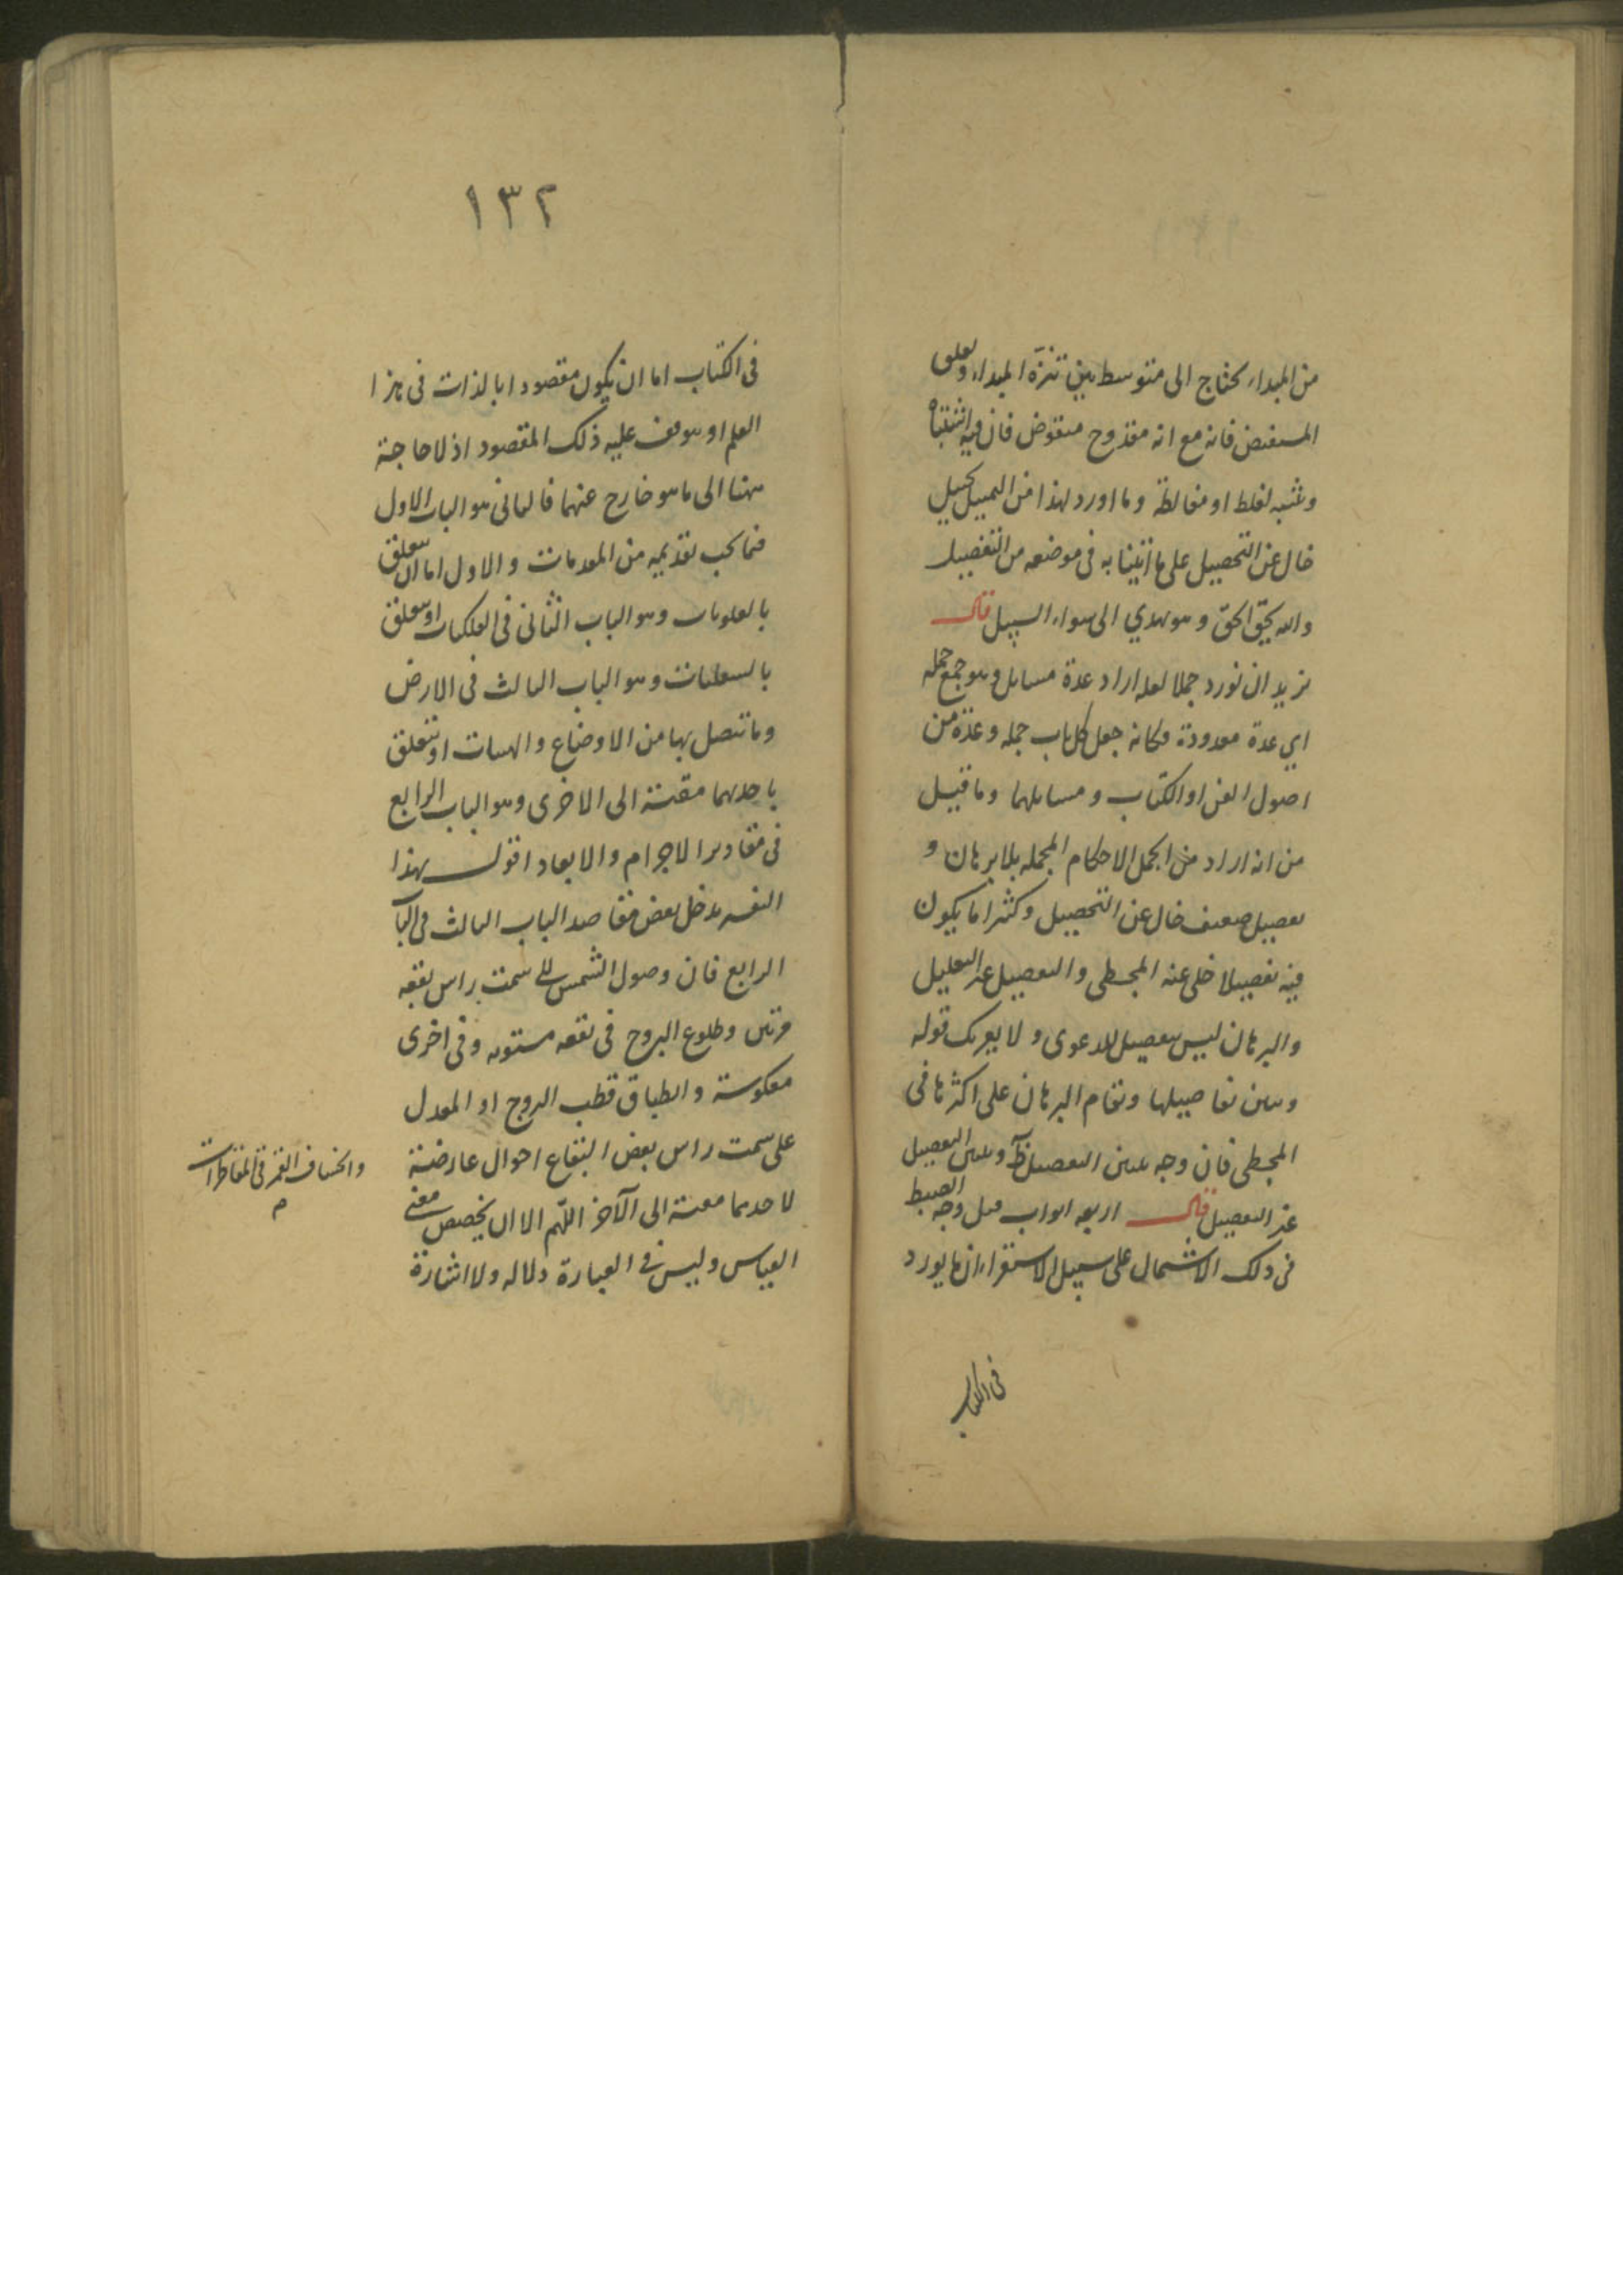 من المبداء يحتاج الى متوسط بين تنزه المبداء وتعلق
المستفيض فانه مع انه مقدوح منقوض فان فيه اشتباه
وشبه لغلط او مغالطة وما اورد لهذا من
خال عن التحصيل على ما اتينا به في موضعه من التفصيل
والله يحق الحق وهو يهدي الى سواء السبيل قال
نريد ان نورد جملا لعله اراد عدة مسايل وهو جمع جمله
اي عدة معدودة وكانه جعل كل باب جمله وعدة من
اصول الفن او الكتاب و مسايلهما وما قيل
من انه اراد من الجمل الاحكام المجمله بلا برهان و
تفصيل ضعيف خال عن التحصيل وكثيرا ما يكون
فيه تفصيلا خلى عنه المجسطى والتفصيل عند التعليل
والبرهان ليس تفصيل للدعوى ولا يغرك قوله
وتبين تفاصيلها وتقام البرهان على اكثرها في
المجسطى فان وجه تبيين التفصيل ظ وتبيين التفصيل
غير التفصيل قال اربعه ابواب قيل وجه الضبط
في ذلك الاشتمال على سبيل الاستقراء ان ما يورد
في الكتاب
١٣٢
في الكتاب اما ان يكون مقصودا بالذات في هذا
العلم او يتوقف عليه ذلك المقصود اذ لا حاجة
ههنا الى ما هو خارج عنهما فالثاني هو الباب الاول
فيما يجب تقديمه من المقدمات والاول اما ان يتعلق
بالعلويات وهو الباب الثاني في الفلكيات او يتعلق
بالسفليات وهو الباب الثالث في الارض
وما تتصل بها من الاوضاع والهيئات او تتعلق
باحديهما مقيسة الى الاخرى وهو الباب الرابع
في مقادير الاجرام والابعاد اقول بهذا
التفسير يدخل بعض مقاصد الباب الثالث في الباب
الرابع فان وصول الشمس الى سمت راس بقعه
مرتين وطلوع البروج في بقعه مستويه وفي اخرى
معكوسة وانطباق قطب البروج او المعدل
على سمت راس بعض البقاع احوال عارضة
وانخساف القمر في المقاطرات
م
لاحديهما مقيسة الى الآخر اللهم الا ان يخصص معنى
القياس وليس في العبارة دلاله ولا اشارة